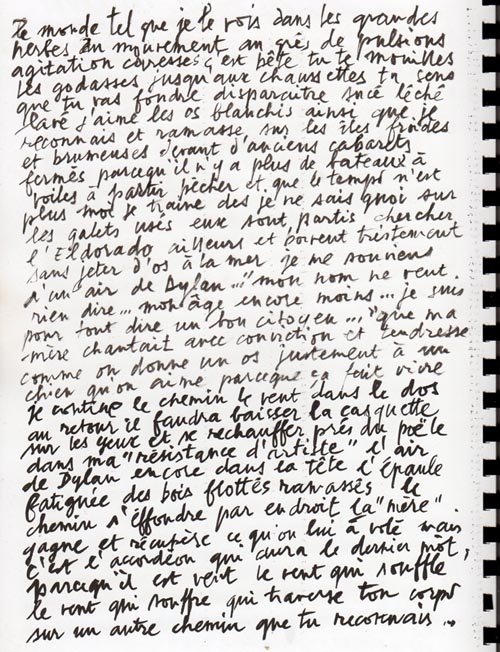 Le monde tel que je le vois dans les grandes
herbes du mouvement au grès de pulsions
agitation caresses c'est bête tu te mouilles
les godasses jusqu'aux chaussettes tu sens
que tu vas fondre disparaitre sucé léché
lavé j'aime les os blanchis ainsi que je
reconnais et ramasse sur les îles froides
et brumeuses devant d'anciens cabarets
fermés parcequ'il n'y a plus de bateaux à
voiles à partir pêcher et que le temps n'est
plus moi je traine des je ne sais quoi sur
les galets usés eux sont partis chercher
l'Eldorado ailleurs et boivent tristement
sans jeter d'os à la mer je me souviens
d'un air de Dylan..." mon nom ne veut
rien dire... mon âge encore moins... je suis
pour tout dire un bon citoyen..." que ma
mère chantait avec conviction et tendresse
comme on donne un os justement à un
chien qu'on aime parceque ça fait vivre
Je continue le chemin le vent dans le dos
au retour il faudra baisser la casquette
sur les yeux et se rechauffer près du poële
dans ma "résistance d'artiste" l'air
de Dylan encore dans la tête l'épaule
fatiguée des bois flottés ramassés le
chemin s'éffondre par endroit la "mère"
gagne et récupère ce qu'on lui à volé mais
c'est l'accordéon qui aura le dernier mot,
parcequ'il est vent le vent qui souffle
le vent qui souffre qui traverse ton corps
sur un autre chemin que tu reconnais...